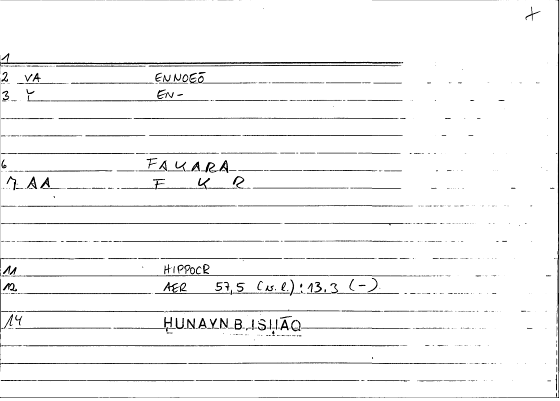 +
1
2 VA ENNOEŌ
3 Y EN-
6 FAKARA
7 AA F K R
11 HIPPOCR
12 AER 57,5 (n.l.): 13.3 (-)
14 ḤUNAYN B. ISḤĀQ